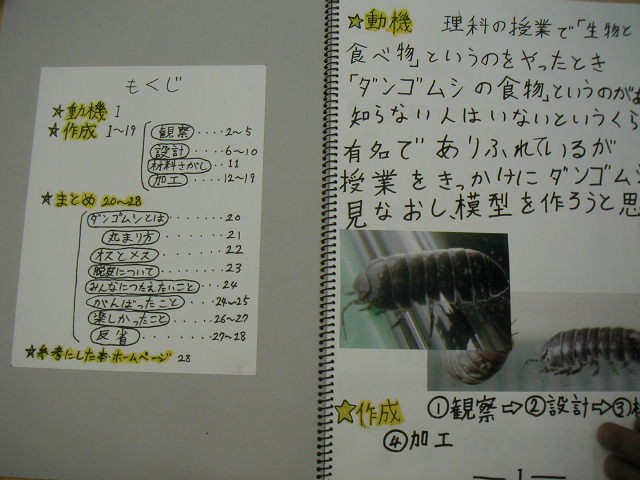 もくじ
★動機 1
★作成 1〜19
観察‥‥2〜5
設計‥‥6〜10
材料さがし‥11
加工‥‥12〜19
★まとめ 20〜28
ダンゴムシとは‥‥‥20
丸まり方‥‥‥21
オスとメス‥‥‥22
脱皮について‥‥‥23
みんなにつたえたいこと‥‥24
がんばったこと‥‥24〜25
楽しかったこと‥‥26〜27
反省‥‥‥27〜28
★参考にした本・ホームページ 28
★動機 理科の授業で「生物と
食べ物」というのをやったとき
「ダンゴムシの食物」というのが
知らない人はいないというくら
有名でありふれているが
授業をきっかけにダンゴムシ
見なおし、模型を作ろうと思
★作成 ①観察⇨②設計⇨③
④加工
1